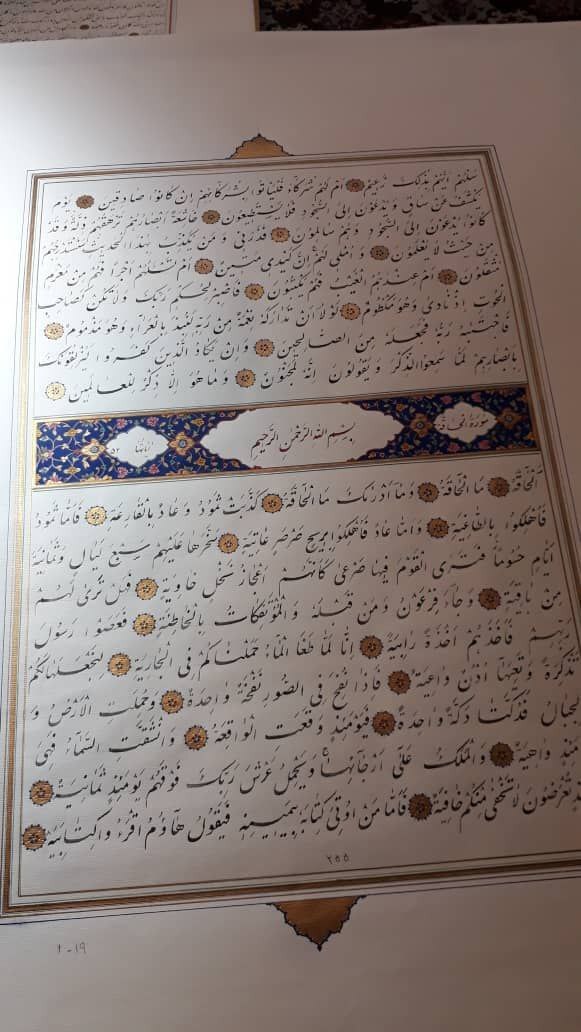 سَلْهُمْ اَيُّهُمْ بِذٰلِكَ زَعِيمٌ اَمْ لَهُمْ شُرَكَاءُ فَلْيَأْتُوا بِشُرَكَائِهِمْ اِنْ كَانُوا صَادِقِينَ يَوْمَ
يُكْشَفُ عَنْ سَاقٍ وَيُدْعَوْنَ اِلَى السُّجُودِ فَلَا يَسْتَطِيعُونَ خَاشِعَةً اَبْصَارُهُمْ تَرْهَقُهُمْ ذِلَّةٌ وَقَدْ
كَانُوا يُدْعَوْنَ اِلَى السُّجُودِ وَهُمْ سَالِمُونَ فَذَرْنِي وَمَنْ يُكَذِّبُ بِهٰذَا الْحَدِيثِ سَنَسْتَدْرِجُهُمْ
مِنْ حَيْثُ لَا يَعْلَمُونَ وَاُمْلِي لَهُمْ اِنَّ كَيْدِي مَتِينٌ اَمْ تَسْئَلُهُمْ اَجْرًا فَهُمْ مِنْ مَغْرَمٍ
مُثْقَلُونَ اَمْ عِنْدَهُمُ الْغَيْبُ فَهُمْ يَكْتُبُونَ فَاصْبِرْ لِحُكْمِ رَبِّكَ وَلَا تَكُنْ كَصَاحِبِ
الْحُوتِ اِذْ نَادٰى وَهُوَ مَكْظُومٌ لَوْلَا اَنْ تَدَارَكَهُ نِعْمَةٌ مِنْ رَبِّهِ لَنُبِذَ بِالْعَرَاءِ وَهُوَ مَذْمُومٌ
فَاجْتَبٰيهُ رَبُّهُ فَجَعَلَهُ مِنَ الصَّالِحِينَ وَاِنْ يَكَادُ الَّذِينَ كَفَرُوا لَيُزْلِقُونَكَ
بِاَبْصَارِهِمْ لَمَّا سَمِعُوا الذِّكْرَ وَيَقُولُونَ اِنَّهُ لَمَجْنُونٌ وَمَا هُوَ اِلَّا ذِكْرٌ لِلْعَالَمِينَ
سُورَةُ الْحَاقَّة بِسْمِ اللهِ الرَّحْمٰنِ الرَّحِيمِ ٥٢
اَلْحَاقَّةُ مَا الْحَاقَّةُ وَمَا اَدْرٰيكَ مَا الْحَاقَّةُ كَذَّبَتْ ثَمُودُ وَعَادٌ بِالْقَارِعَةِ فَاَمَّا ثَمُودُ
فَاُهْلِكُوا بِالطَّاغِيَةِ وَاَمَّا عَادٌ فَاُهْلِكُوا بِرِيحٍ صَرْصَرٍ عَاتِيَةٍ سَخَّرَهَا عَلَيْهِمْ سَبْعَ لَيَالٍ وَثَمَانِيَةَ
اَيَّامٍ حُسُومًا فَتَرَى الْقَوْمَ فِيهَا صَرْعٰى كَاَنَّهُمْ اَعْجَازُ نَخْلٍ خَاوِيَةٍ فَهَلْ تَرٰى لَهُمْ
مِنْ بَاقِيَةٍ وَجَاءَ فِرْعَوْنُ وَمَنْ قَبْلَهُ وَالْمُؤْتَفِكَاتُ بِالْخَاطِئَةِ فَعَصَوْا رَسُولَ
رَبِّهِمْ فَاَخَذَهُمْ اَخْذَةً رَابِيَةً اِنَّا لَمَّا طَغَا الْمَاءُ حَمَلْنَاكُمْ فِي الْجَارِيَةِ لِنَجْعَلَهَا لَكُمْ
تَذْكِرَةً وَتَعِيَهَا اُذُنٌ وَاعِيَةٌ فَاِذَا نُفِخَ فِي الصُّورِ نَفْخَةٌ وَاحِدَةٌ وَحُمِلَتِ الْاَرْضُ وَ
الْجِبَالُ فَدُكَّتَا دَكَّةً وَاحِدَةً فَيَوْمَئِذٍ وَقَعَتِ الْوَاقِعَةُ وَانْشَقَّتِ السَّمَاءُ فَهِيَ
مَئِذٍ وَاهِيَةٌ وَالْمَلَكُ عَلٰى اَرْجَائِهَا وَيَحْمِلُ عَرْشَ رَبِّكَ فَوْقَهُمْ يَوْمَئِذٍ ثَمَانِيَةٌ
تُعْرَضُونَ لَا تَخْفٰى مِنْكُمْ خَافِيَةٌ فَاَمَّا مَنْ اُوتِيَ كِتَابَهُ بِيَمِينِهِ فَيَقُولُ هَاؤُمُ اقْرَؤُا كِتَابِيَهْ
٢٥٥